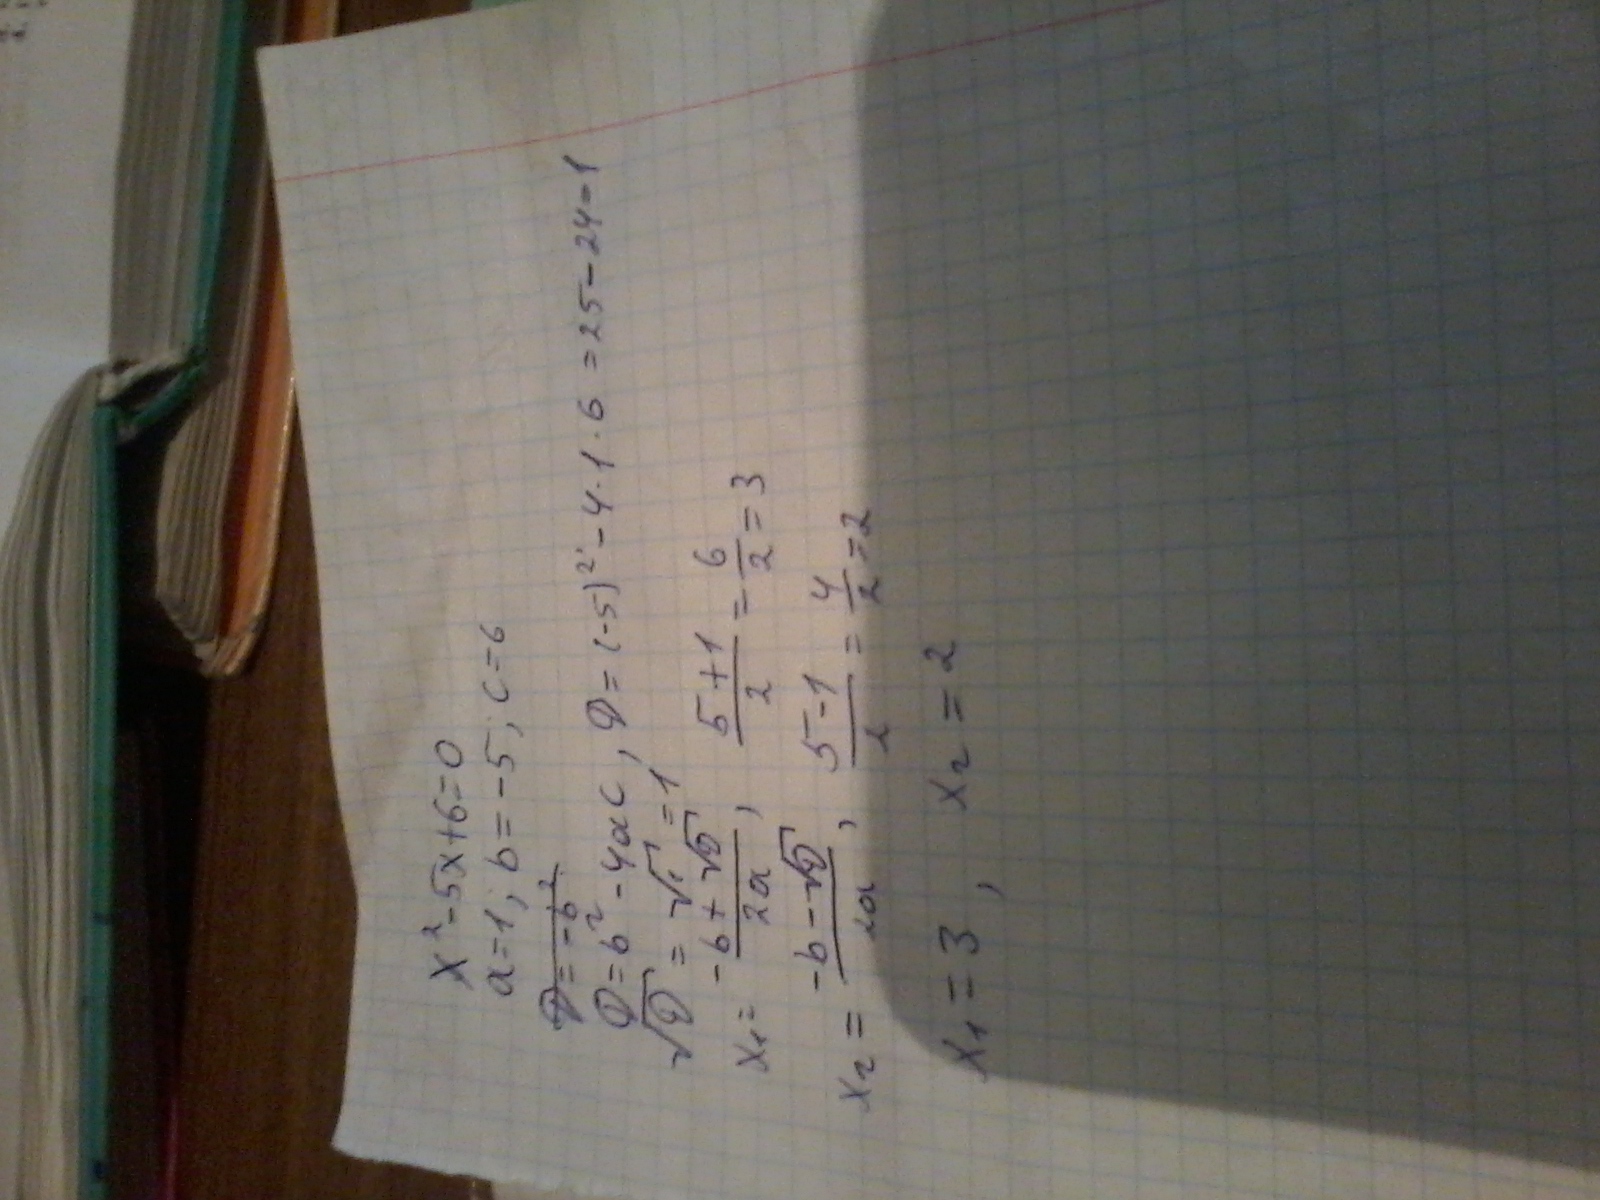 x² - 5x + 6 = 0
a = 1; b = -5; c = 6
D = -b²
D = b² - 4ac, D = (-5)² - 4·1·6 = 25 - 24 = 1
√D = √1 = 1
x₁ = (-b + √D)/2a, (5+1)/2 = 6/2 = 3
x₂ = (-b - √D)/2a, (5-1)/2 = 4/2 = 2
x₁ = 3, x₂ = 2